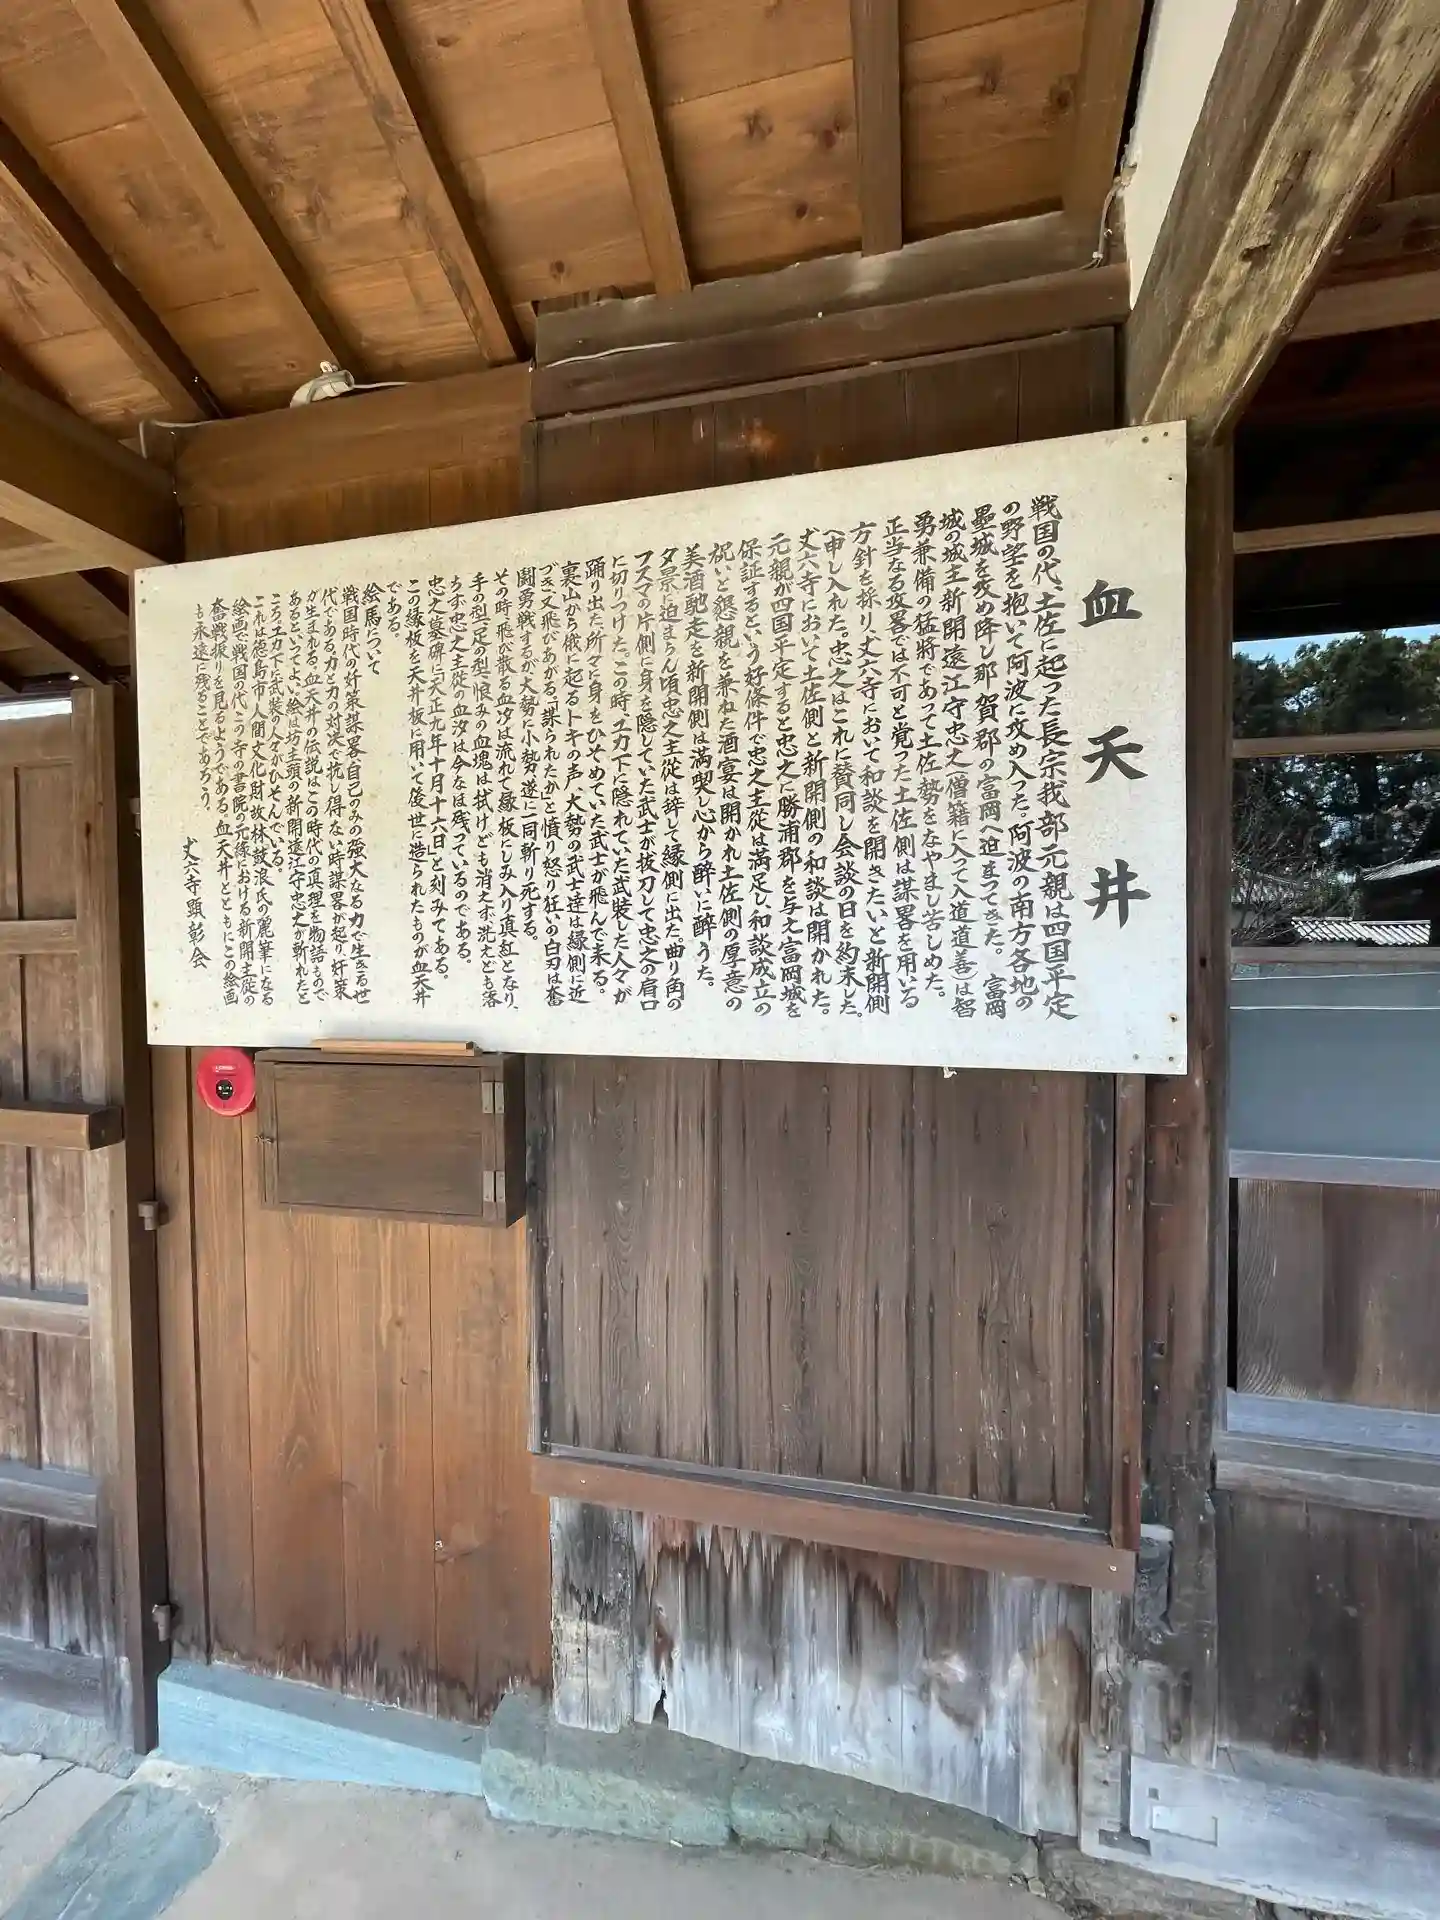 血天井
戦国の代、土佐に起った長宗我部元親は四国平定
の野望を抱いて阿波に攻め入った。阿波の南方各地の
塁城を攻め降し那賀郡の富岡へ迫まってきた。富岡
城の城主新開遠江守忠之(僧籍に入って入道道善)は智
勇兼備の猛將であって土佐勢をなやまし苦しめた。
正当なる攻畧では不可と覚った土佐側は謀畧を用いる
方針を採り、丈六寺において和談を開きたいと新開側
へ申し入れた。忠之はこれに賛同し会談の日を約束した。
丈六寺において土佐側と新開側の和談は開かれた。
元親が四国平定すると忠之に勝浦郡を与え富岡城を
保証するという好條件で忠之主従は満足し、和談成立の
祝いと懇親を兼ねた酒宴は開かれ土佐側の厚意の
美酒馳走を新開側は満喫し心から醉いに醉うた。
夕景に迫まらん頃忠之主従は辞して縁側に出た。曲り角の
フスマの片側に身を隠していた武士が抜刀して忠之の肩口
に切りつけた。この時ユカ下に隠れていた武装した人々が
踊り出た所々に身をひそめていた武士が飛んで来る。
裏山から俄に起るトキの声、大勢の武士達は縁側に近
づき又飛びあがる。「謀られたか」と憤り怒り狂いの白刃は奮
闘勇戦するが大勢に小勢遂に一同斬り死する。
その時飛び散る血汐は流れて縁板にしみ入り真紅となり、
手の型、足の型、恨みの血塊は拭けども消えず洗えども落
ちず忠之主従の血汐は今なほ残っているのである。
忠之墓碑に「天正九年十月十六日」と刻みてある。
この縁板を天井板に用いて後世に造られたものが血天井
である。
絵馬について
戦国時代の奸策謀畧、自己のみの強大なる力で生きる世
代である。力と力の対決で抗し得ない時謀畧が起り奸策
が生まれる、血天井の伝説はこの時代の真理を物語もので
あるといってよい。絵は坊主頭の新開遠江守忠之が斬れたと
ころ、ユカ下に武装の人々がひそんでいる。
これは徳島市人間文化財故林鼓浪氏の麗筆になる
絵画で戦国の代、この寺の書院の元篠における新開主従の
奮戦振りを見るようである。血天井とともにこの絵画
も永遠に残ることであろう。
丈六寺顕彰会